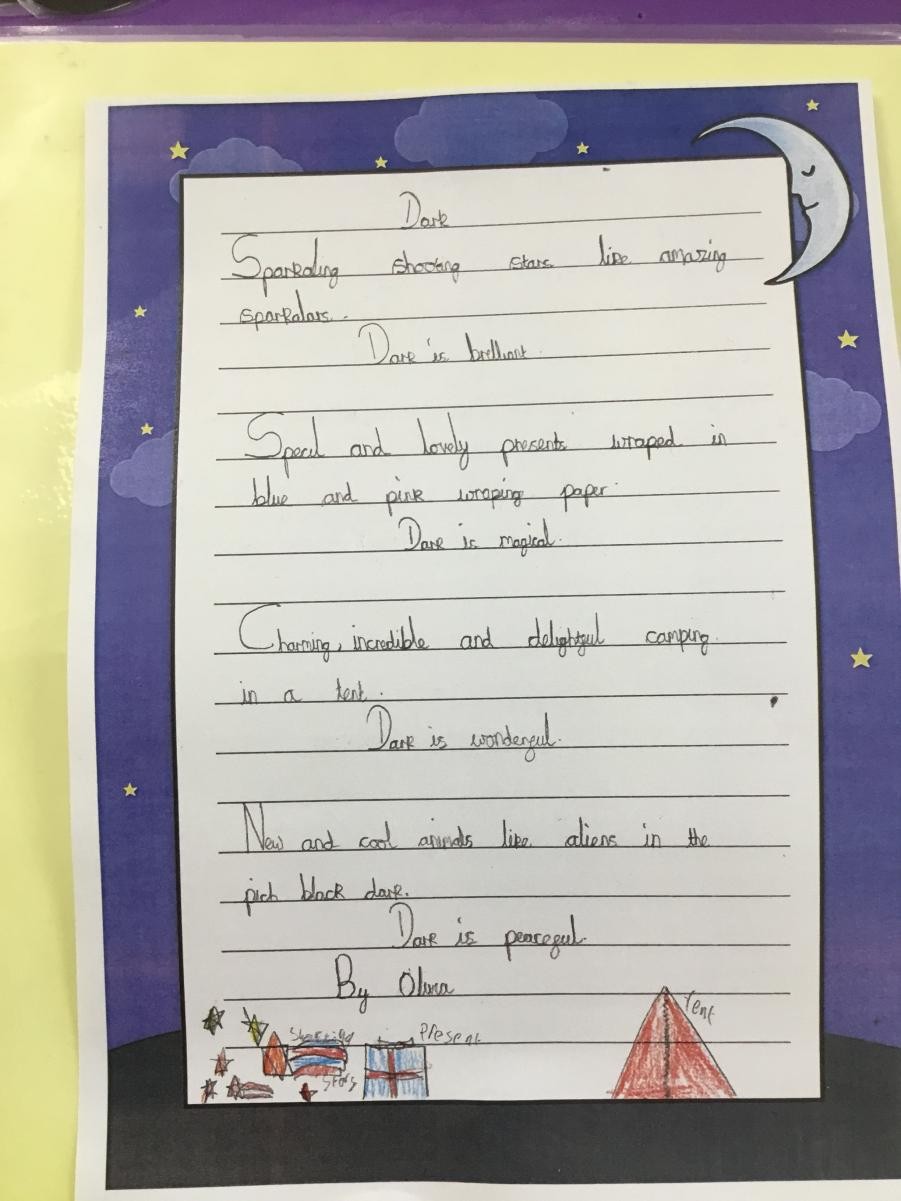 Dark
Sparkaling shooting stars like amazing
sparkalars.
Dark is brelliant.
Specil and lovely presents wraped in
blue and pink wraping paper.
Dark is magical.
Charming, incredible and delightful camping
in a tent.
Dark is wonderful.
New and cool animals like aliens in the
pich black dark.
Dark is peaceful.
By Olivia
Shooting
Stars
Present
Tent